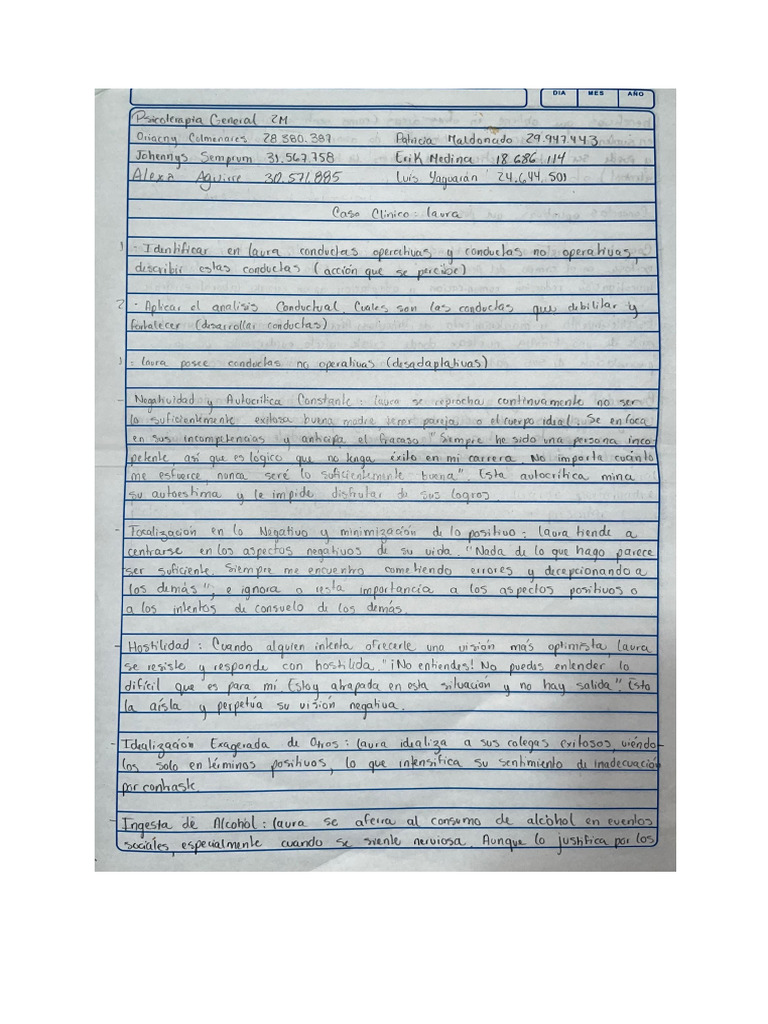 DIA MES AÑO
Psicoterapia General 2M
Oriacny Colmenares 28.380.387 Patricia Maldonado 29.947.443
Johennys Semprum 31.567.758 Erik Medina 18.686.114
Alexa Aguirre 30.571.885 Luis Yaguarán 24.644.501
Caso Clinico: Laura
1- Identificar en Laura conductas operativas y conductas no operativas,
describir estas conductas (acción que se percibe)
2- Aplicar el analisis Conductual. Cuales son las conductas que debilitar y
fortalecer (desarrollar conductas)
1- Laura posee conductas no operativas (desadaptativas)
- Negatividad y Autocrítica Constante: Laura se reprocha continuamente no ser
lo suficientemente exitosa buena madre, tener pareja o el cuerpo ideal. Se enfoca
en sus incompetencias y anticipa el fracaso "Siempre he sido una persona inco
petente así que es lógico que no tenga éxito en mi carrera. No importa cuánto
me esfuerce, nunca seré lo suficientemente buena". Esta autocrítica mina
su autoestima y le impide disfrutar de sus logros
- Focalización en lo Negativo y minimización de lo positivo: Laura tiende a
centrarse en los aspectos negativos de su vida. "Nada de lo que hago parece
ser suficiente. Siempre me encuentro cometiendo errores y decepcionando a
los demás", e ignora o resta importancia a los aspectos positivos o
a los intentos de consuelo de los demás.
- Hostilidad: Cuando alguien intenta ofrecerle una visión más optimista, Laura
se resiste y responde con hostilida. "¡No entiendes! No puedes entender lo
difícil que es para mí. Estoy atrapada en esta situación y no hay salida". Esto
la aísla y perpetúa su visión negativa.
- Idealización Exagerada de Otros: Laura idealiza a sus colegas exitosos, viendo-
los solo en términos positivos, lo que intensifica su sentimiento de inadecuación
por contraste.
- Ingesta de Alcohol: Laura se aferra al consumo de alcohol en eventos
sociales, especialmente cuando se siente nerviosa. Aunque lo justifica por los